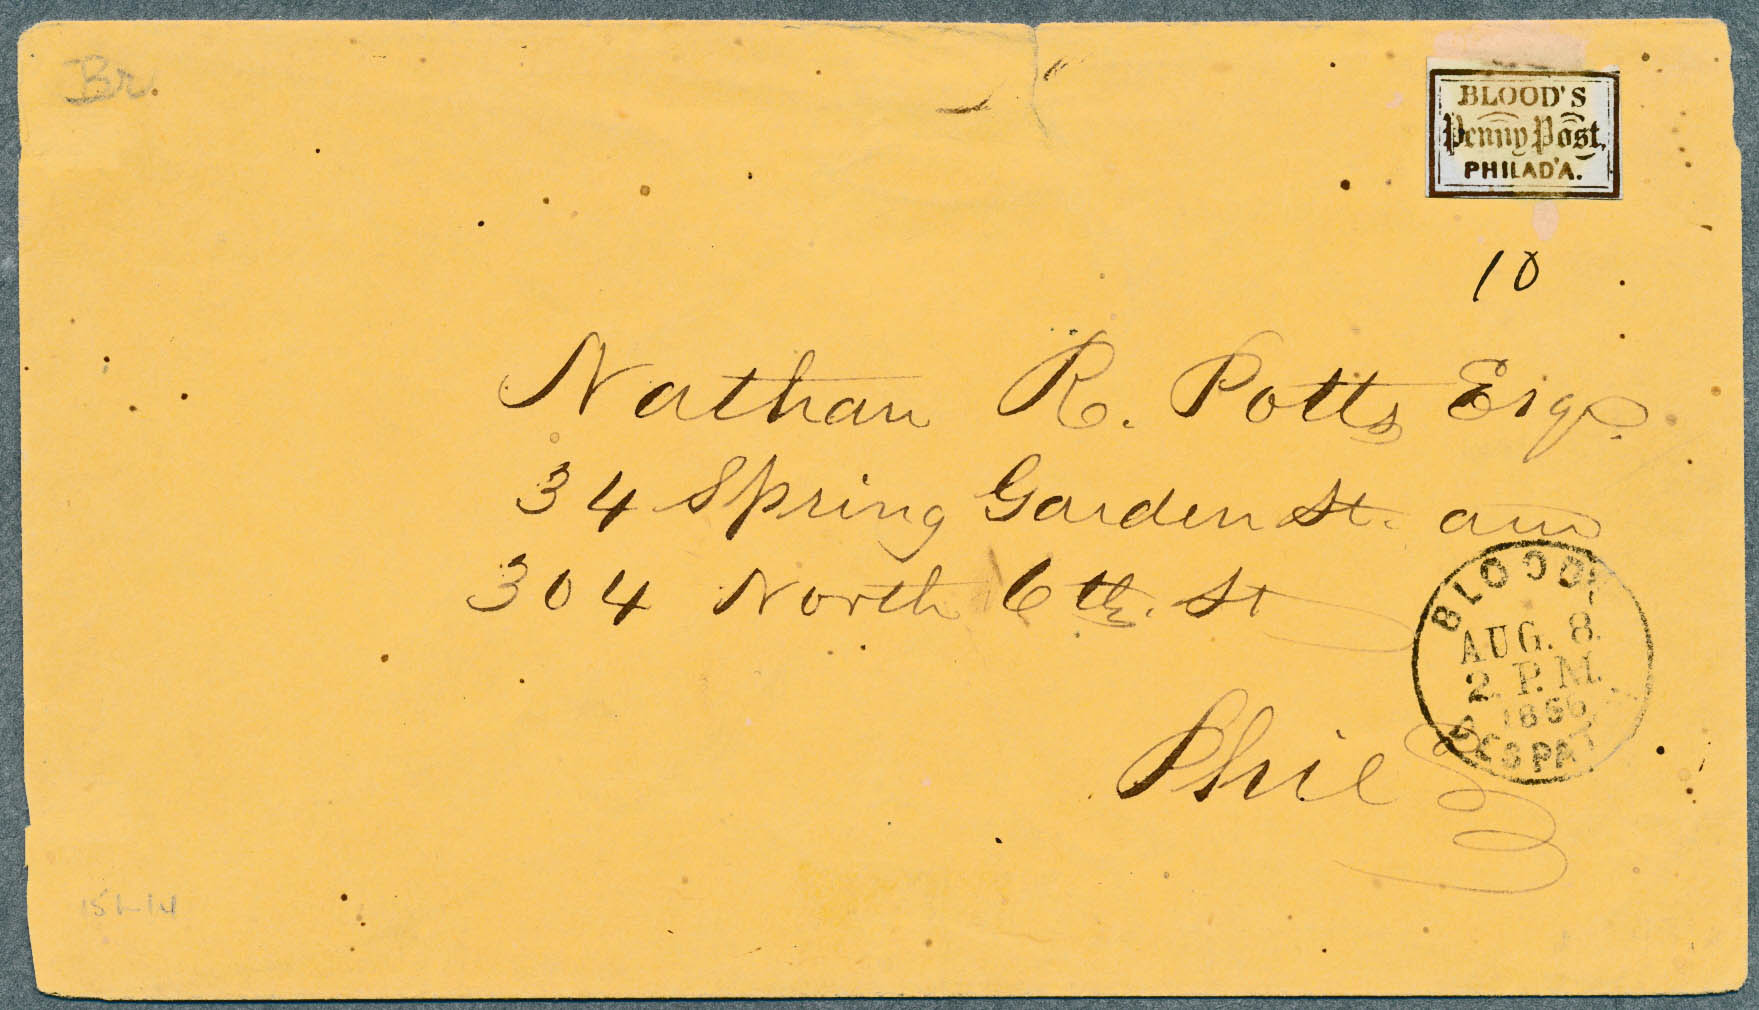 Br.
BLOOD'S
Penny Post,
PHILAD'A.
10
Nathan R. Potts Esq.
34 Spring Garden St. am
304 North 6th. St
Phil
BLOOD'S
AUG. 8.
2. P.M.
1856
DESPATCH
15L14